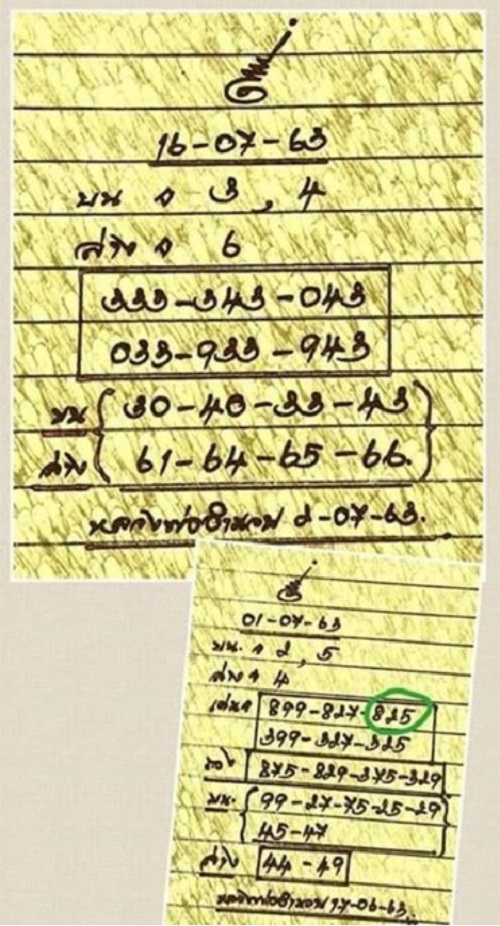 16-07-63
บน 3, 4
ล่าง 6
333-343-043
033-933-943
บน 30-40-33-43
ล่าง 61-64-65-66
หลวงพ่ออำนวย 2-07-63.
01-07-63
บน. 2, 5
ล่าง 4
เด่น 899-827-825
399-327-325
875-829-375-329
บน. 99-27-75-25-29
45-47
ล่าง 44-49
หลวงพ่ออำนวย 17-06-63.